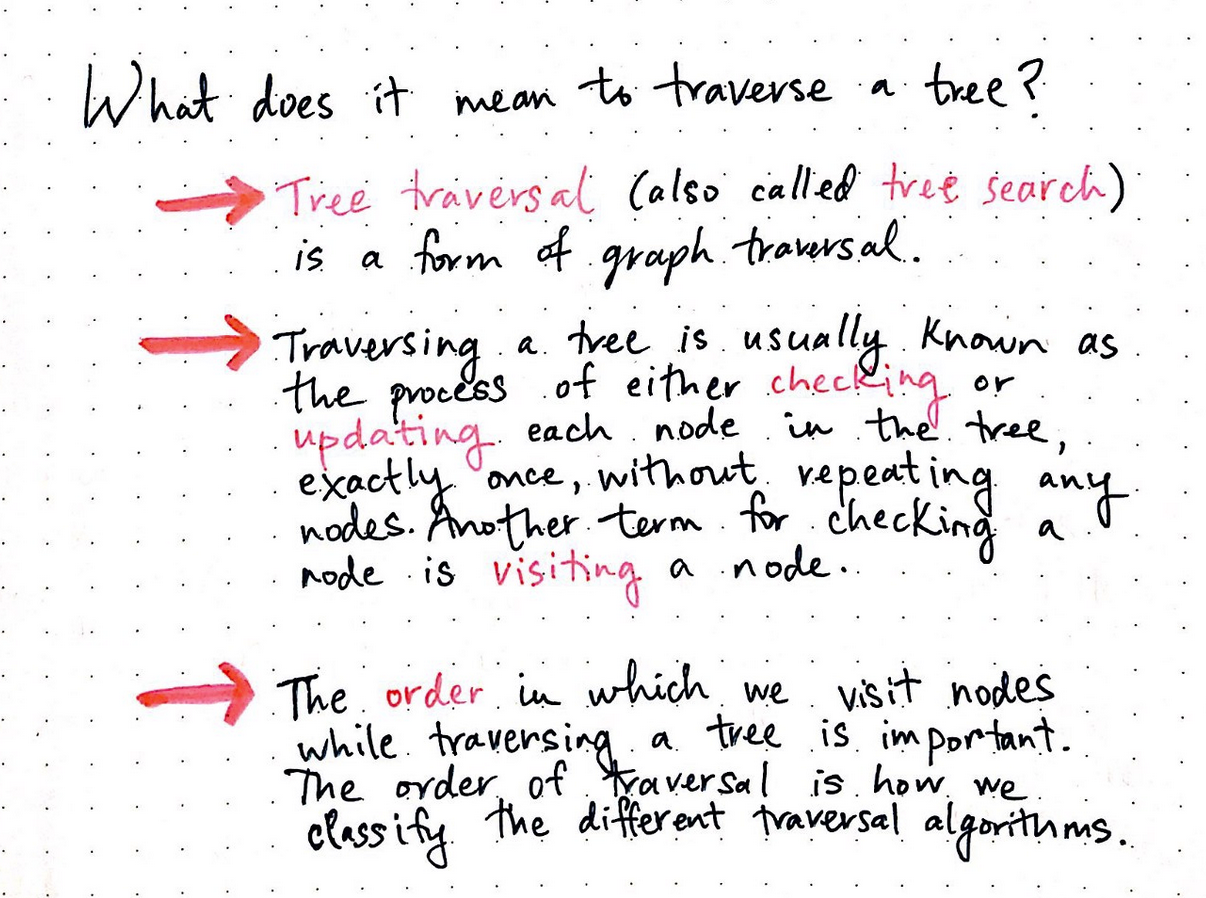 What does it mean to traverse a tree?
Tree traversal (also called tree search)
is a form of graph traversal.
Traversing a tree is usually known as
the process of either checking or
updating each node in the tree,
exactly once, without repeating any
nodes. Another term for checking a
node is visiting a node.
The order in which we visit nodes
while traversing a tree is important.
The order of traversal is how we
classify the different traversal algorithms.